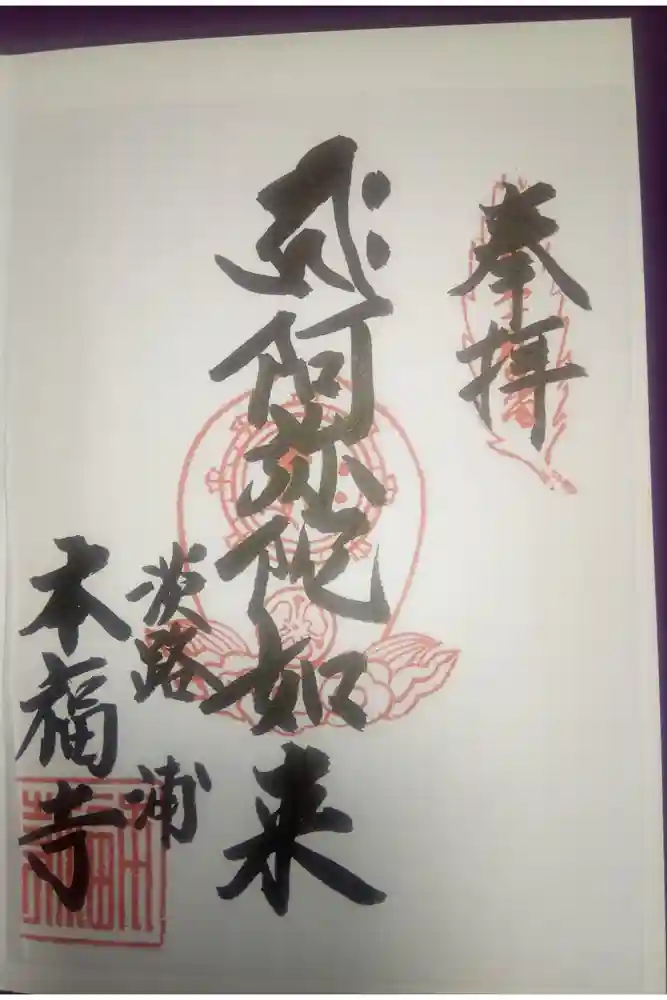 奉拝
𑖮𑖿𑖨𑖱𑖾 阿弥陀如来
淡路 浦
本福寺